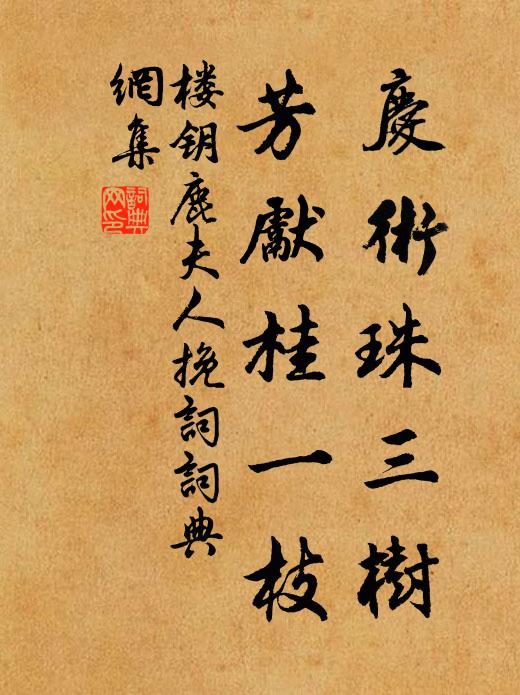 慶術珠三樹
芳獻桂一枝
楼钥鹿夫人挽詞詞典
網集
詞典
网印